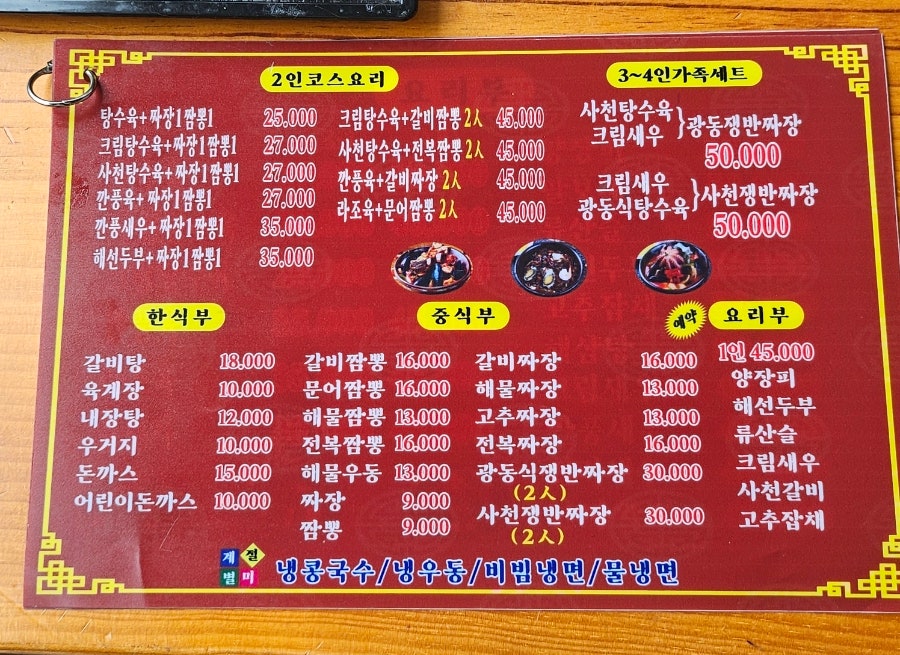 2인코스요리
탕수육+짜장1짬뽕1 25.000
크림탕수육+짜장1짬뽕1 27.000
사천탕수육+짜장1짬뽕1 27.000
깐풍육+짜장1짬뽕1 27.000
깐풍새우+짜장1짬뽕1 35.000
해선두부+짜장1짬뽕1 35.000
크림탕수육+갈비짬뽕2人 45.000
사천탕수육+전복짬뽕2人 45.000
깐풍육+갈비짜장2人 45.000
라조육+문어짬뽕2人 45.000
3~4인가족세트
사천탕수육
크림새우
}광동쟁반짜장
50.000
크림새우
광동식탕수육
}사천쟁반짜장
50.000
한식부
갈비탕 18.000
육계장 10.000
내장탕 12.000
우거지 10.000
돈까스 15.000
어린이돈까스 10.000
중식부
갈비짬뽕 16.000
문어짬뽕 16.000
해물짬뽕 13.000
전복짬뽕 16.000
해물우동 13.000
짜장 9.000
짬뽕 9.000
갈비짜장 16.000
해물짜장 13.000
고추짜장 13.000
전복짜장 16.000
광동식쟁반짜장 30.000
(2人)
사천쟁반짜장 30.000
(2人)
예약 요리부
1인 45.000
양장피
해선두부
류산슬
크림새우
사천갈비
고추잡채
계절
별미
냉콩국수/냉우동/비빔냉면/물냉면